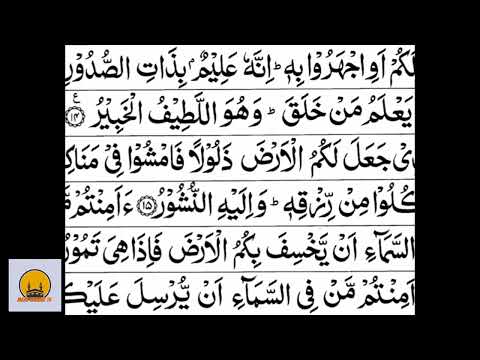 لَكُمْ اَوِ اجْهَرُوْا بِهٖ ؕ اِنَّهٗ عَلِيْمٌۢ بِذَاتِ الصُّدُوْرِ
يَعْلَمُ مَنْ خَلَقَ ؕ وَهُوَ اللَّطِيْفُ الْخَبِيْرُ ۝۱۴ ع
ىْ جَعَلَ لَكُمُ الْاَرْضَ ذَلُوْلًا فَامْشُوْا فِىْ مَنَاكِ
كُلُوْا مِنْ رِّزْقِهٖ ؕ وَاِلَيْهِ النُّشُوْرُ ۝۱۵ ءَاَمِنْتُمْ مَّ
السَّمَآءِ اَنْ يَّخْسِفَ بِكُمُ الْاَرْضَ فَاِذَا هِىَ تَمُوْرُ
اَمِنْتُمْ مَّنْ فِى السَّمَآءِ اَنْ يُّرْسِلَ عَلَيْكُ